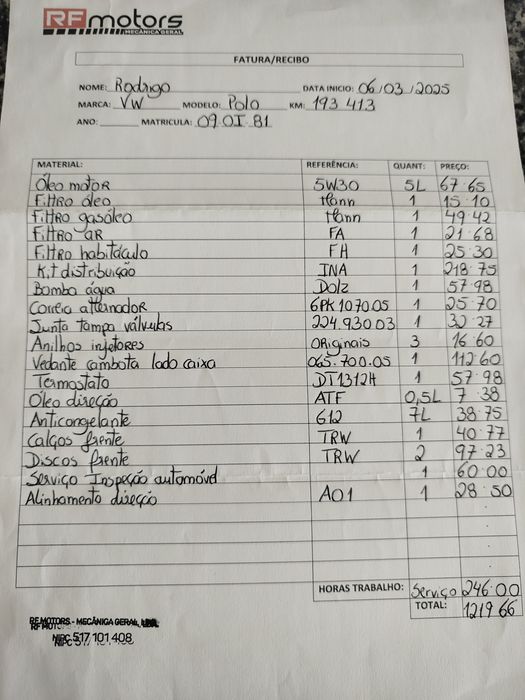 RF motors
MECÂNICA GERAL
FATURA/RECIBO
NOME: Rodrigo DATA INICIO: 06/03/2025
MARCA: VW MODELO: Polo KM: 193 413
ANO: MATRICULA: 09 OI 81
MATERIAL: REFERÊNCIA: QUANT: PREÇO:
Óleo motor 5W30 5L 67.65
Filtro óleo Mann 1 15.10
Filtro gasóleo Mann 1 49.42
Filtro ar FA 1 21.68
Filtro habitáculo FH 1 25.30
Kit distribuição INA 1 218.75
Bomba água Dolz 1 57.98
Correia alternador 6PK1070.05 1 25.70
Junta tampa válvulas 224.930.03 1 32.27
Anilhas injetores Originais 3 16.60
Vedante cambota lado caixa 065.700.05 1 112.60
Termostato DT1312H 1 57.98
Óleo direção ATF 0,5L 7.38
Anticongelante G12 7L 38.75
Calços frente TRW 1 40.77
Discos frente TRW 2 97.23
Serviço Inspeção automóvel 1 60.00
Alinhamento direção A01 1 28.50
HORAS TRABALHO: Serviço 246.00
TOTAL: 1219 66
RF MOTORS - MECÂNICA GERAL,
NIPC 517 101 408